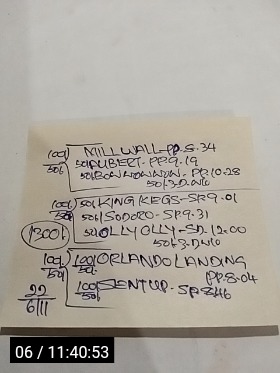 100/ MILLWALL-PP.8.34
50/ 50/AUBERT-PP.9.19
50/BONNOWNON-PP.10.28
50/-3-D.WIC
100/ 50/KING KEGS-SP.9.01
50/ 50/SODORO-SP.9.31
1300/ 50/OLLY OLLY-SD.12.00
50/-3-D.WIC
100/ 100/ORLANDO LANDING
50/ 50/ PP.8.04
100/SENTUP-SP.8.46
50/
22
6111
06 / 11:40:53